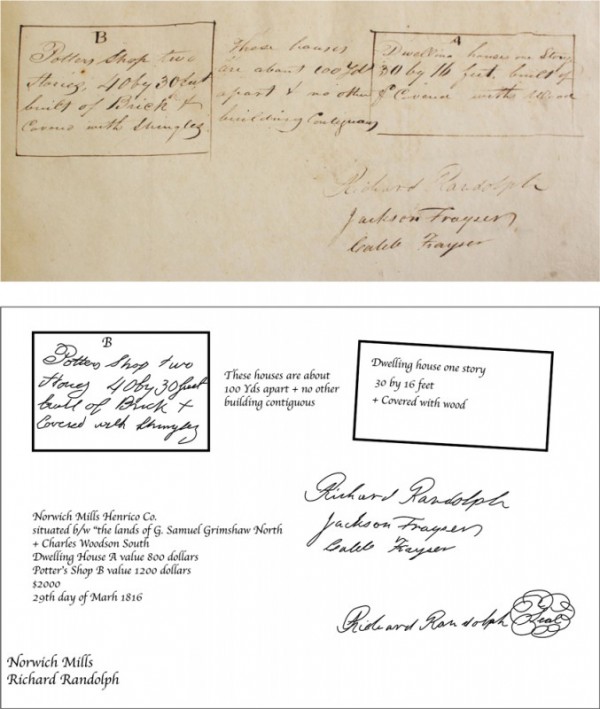 B
Potters Shop two
Stories, 40 by 30 feet
built of Brick +
Covered with Shingles.
These houses
are about 100 Yds
apart & no other
building Contiguous
A
Dwelling house one Story
30 by 16 feet built of
& Covered with Wood
Richard Randolph
Jackson Frayser
Caleb Frayser
B
Potters Shop two
Stories 40 by 30 feet
built of Brick +
Covered with Shingles
These houses are about
100 Yds apart + no other
building contiguous
Dwelling house one story
30 by 16 feet
+ Covered with wood
Richard Randolph
Jackson Frayser
Caleb Frayser
Norwich Mills Henrico Co.
situated b/w "the lands of G. Samuel Grimshaw North
+ Charles Woodson South
Dwelling House A value 800 dollars
Potter's Shop B value 1200 dollars
$2000
29th day of Marh 1816
Richard Randolph Seal
Norwich Mills
Richard Randolph